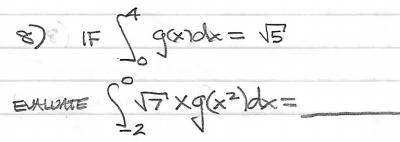 8) IF ∫₀⁴ g(x)dx = √5
EVALUATE ∫₋₂⁰ √7 xg(x²)dx = ______